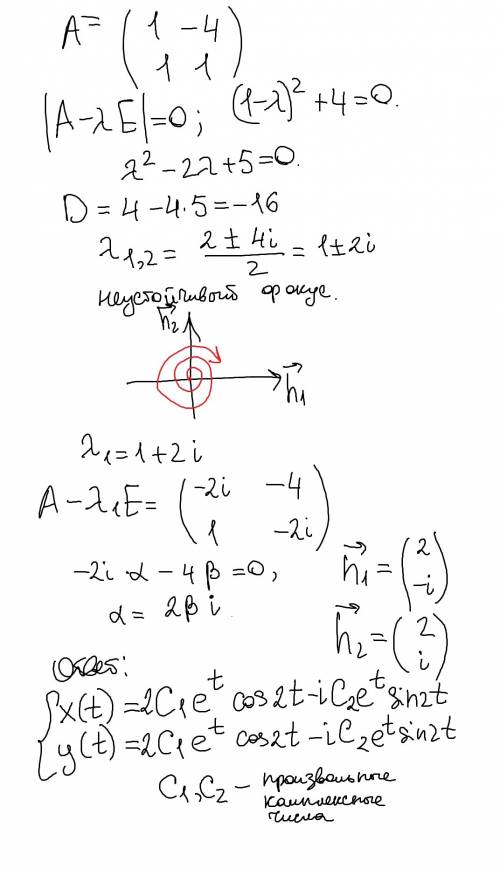 A = ( 1 −4
1 1 )
|A−λE|=0; (1−λ)² +4=0.
λ²−2λ+5=0.
D = 4 −4·5=−16
λ1,2 = (2 ± 4i)/2 = 1±2i
неустойчивый фокус.
h2
h1
λ1=1+2i
A−λ1E= ( −2i −4
1 −2i )
−2i·α −4β=0,
α= 2βi
h1 = ( 2
−i )
h2 = ( 2
i )
Ответ:
{ x(t) =2C1e^t cos2t−iC2e^t sin2t
y(t) =2C1e^t cos2t−iC2e^t sin2t
C1,C2 − произвольные
комплексные
числа